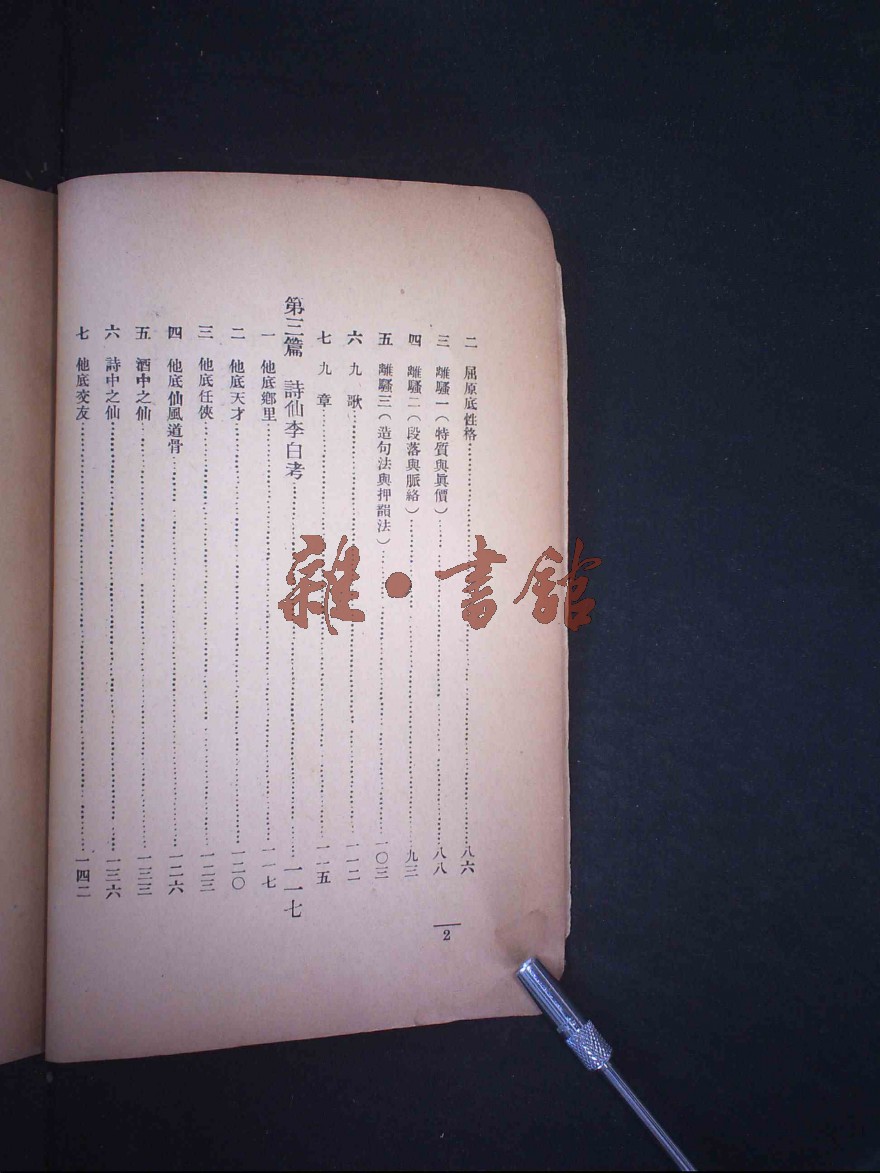 二　屈原底性格……八六
三　離騷一（特質與眞價）……八八
四　離騷二（段落與脈絡）……九三
五　離騷三（造句法與押韻法）……一〇三
六　九　歌……一一二
七　九　章……一一五
第三篇　詩仙李白考……一一七
一　他底鄉里……一一七
二　他底天才……一二〇
三　他底任俠……一二三
四　他底仙風道骨……一二六
五　酒中之仙……一三三
六　詩中之仙……一三六
七　他底交友……一四二
2
雜・書館